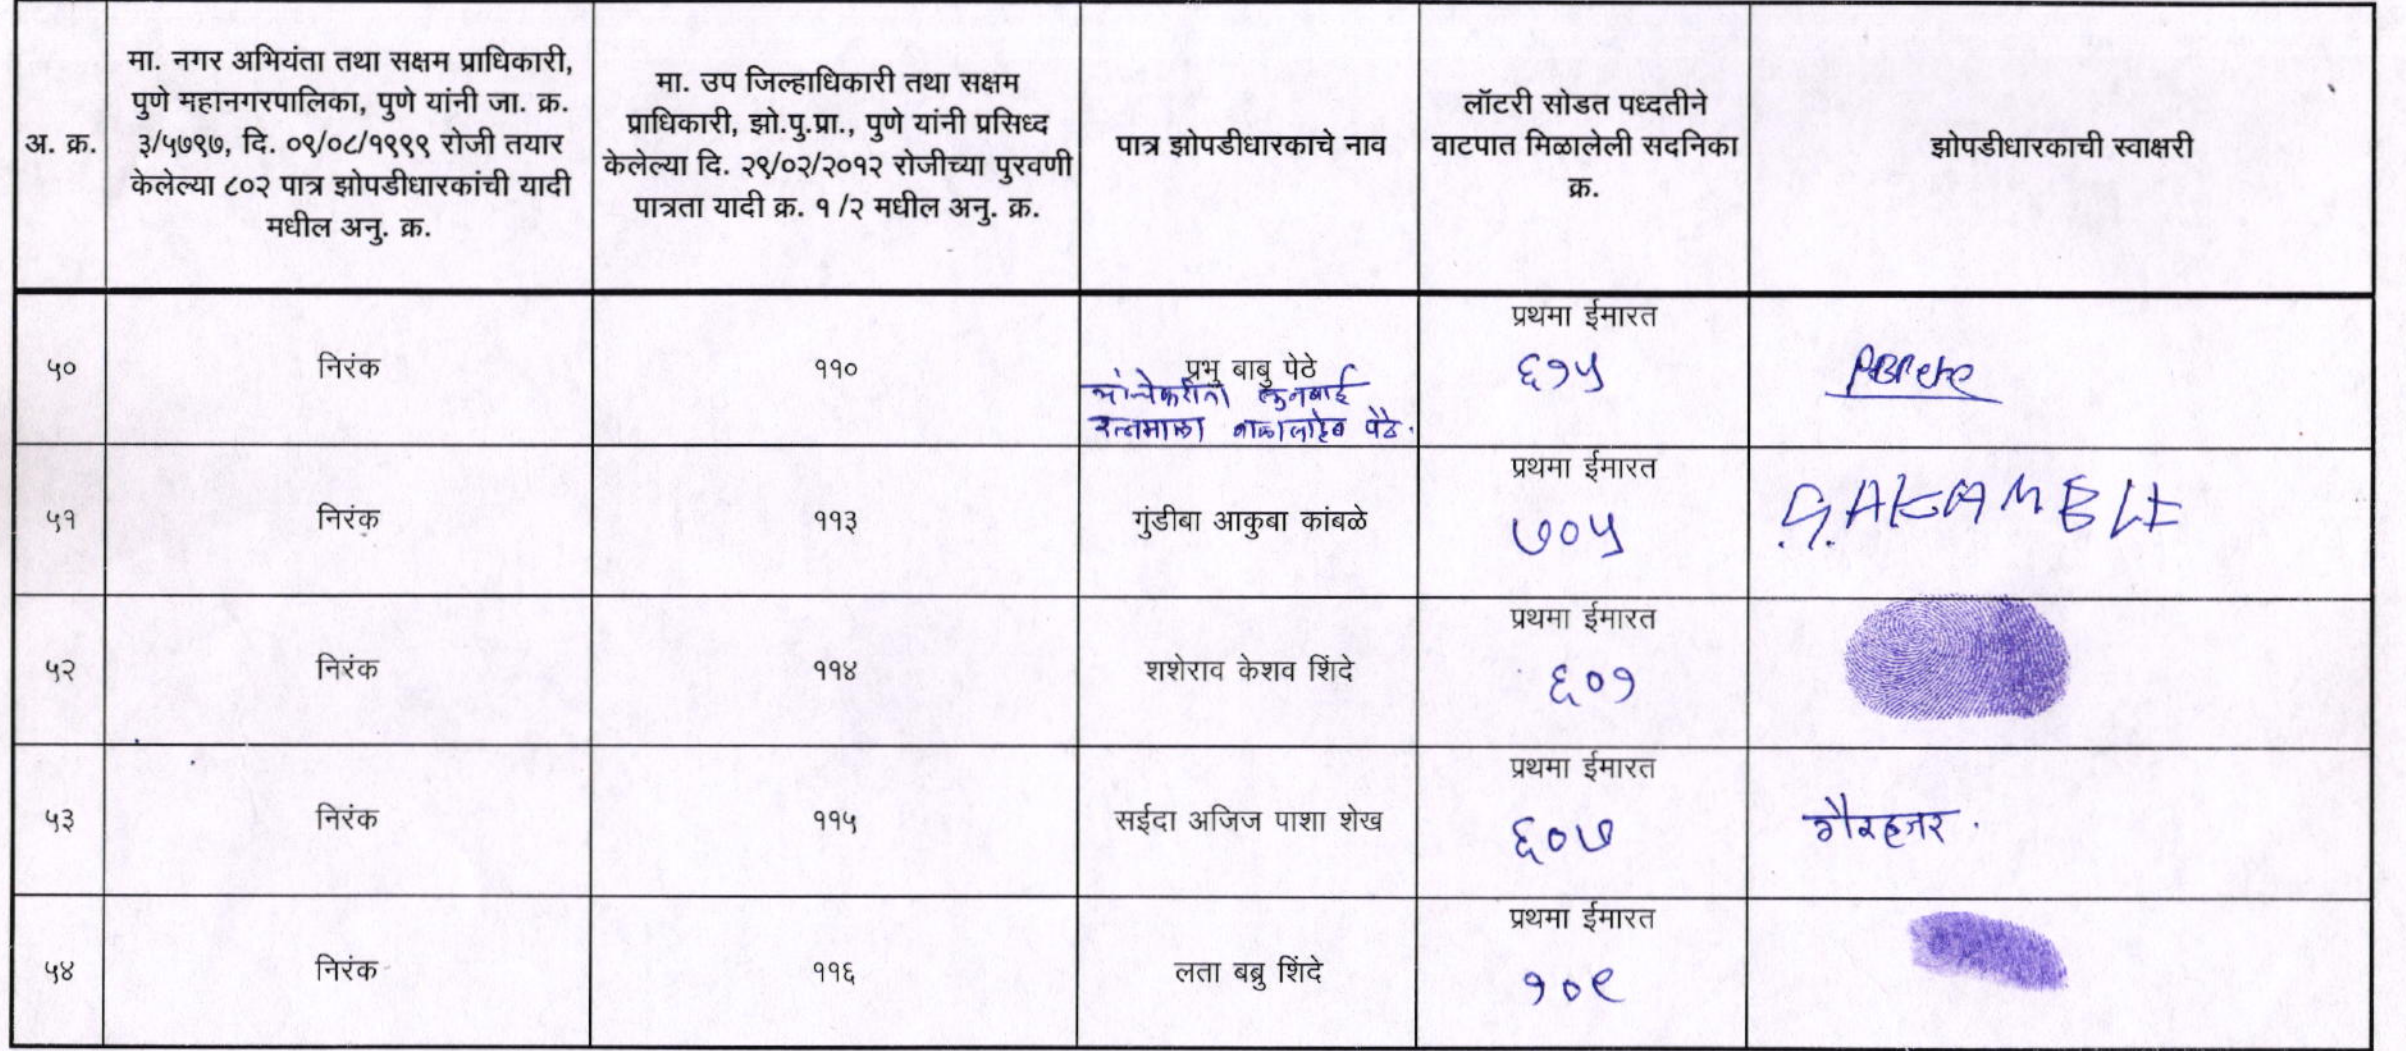 अ. क्र.
मा. नगर अभियंता तथा सक्षम प्राधिकारी,
पुणे महानगरपालिका, पुणे यांनी जा. क्र.
३/५७९७, दि. ०९/०८/१९९९ रोजी तयार
केलेल्या ८०२ पात्र झोपडीधारकांची यादी
मधील अनु. क्र.
मा. उप जिल्हाधिकारी तथा सक्षम
प्राधिकारी, झो.पु.प्रा., पुणे यांनी प्रसिध्द
केलेल्या दि. २९/०२/२०१२ रोजीच्या पुरवणी
पात्रता यादी क्र. १/२ मधील अनु. क्र.
पात्र झोपडीधारकाचे नाव
लॉटरी सोडत पध्दतीने
वाटपात मिळालेली सदनिका
क्र.
झोपडीधारकाची स्वाक्षरी
५०
निरंक
११०
प्रभु बाबु पेठे
यांचेकरीता सुनबाई
रत्नमाला बाळासाहेब पेठे.
प्रथमा ईमारत
६१५
५१
निरंक
११३
गुंडीबा आकुबा कांबळे
प्रथमा ईमारत
७०५
G.A.KAMBLE
५२
निरंक
११४
शशेराव केशव शिंदे
प्रथमा ईमारत
६०१
५३
निरंक
११५
सईदा अजिज पाशा शेख
प्रथमा ईमारत
६०७
गैरहजर.
५४
निरंक
११६
लता बब्रु शिंदे
प्रथमा ईमारत
१०९